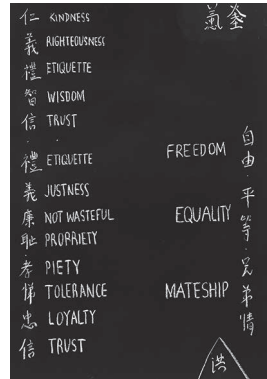 仁 KINDNESS
義 RIGHTEOUSNESS
禮 ETIQUETTE
智 WISDOM
信 TRUST
禮 ETIQUETTE
義 JUSTNESS
廉 NOT WASTEFUL
耻 PROPRIETY
孝 PIETY
悌 TOLERANCE
忠 LOYALTY
信 TRUST
自由·平等·兄弟情
FREEDOM
EQUALITY
MATESHIP
洪